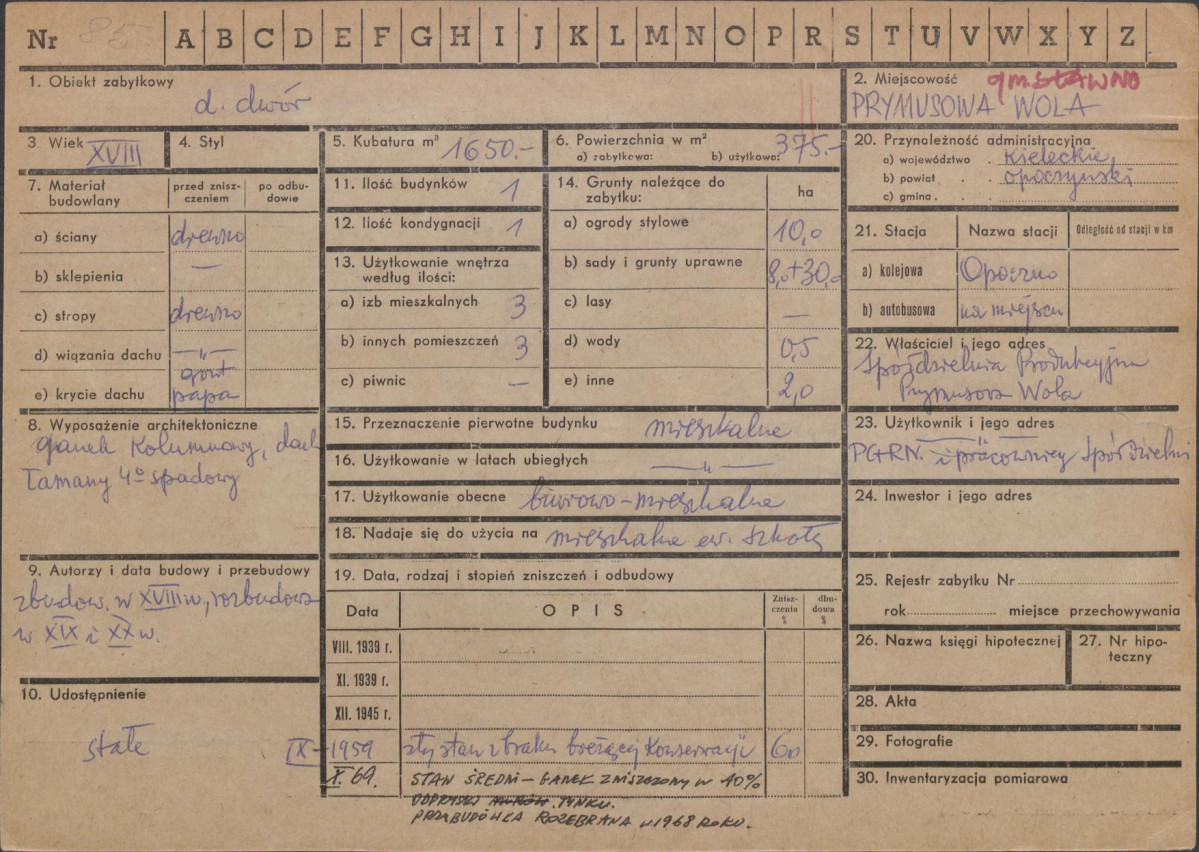 Nr 85. A B C D E F G H I J K L M N O P R S T U V W X Y Z
1. Obiekt zabytkowy
d. dwór
2. Miejscowość gm. SŁAWNO
PRYMUSOWA WOLA
3 Wiek XVIII
4. Styl
5. Kubatura m³ 1650.-
6. Powierzchnia w m² 375.-
a) zabytkowa: b) użytkowa:
7. Materiał budowlany
przed zniszczeniem
po odbudowie
a) ściany drewno
b) sklepienia —
c) stropy drewno
d) wiązania dachu —„—
e) krycie dachu gont
papa
8. Wyposażenie architektoniczne
ganek kolumnowy, dach
łamany 4º spadowy
9. Autorzy i data budowy i przebudowy
zbudow. w XVIII w, rozbudowa
w XIX i XX w.
10. Udostępnienie
stałe
11. Ilość budynków 1
12. Ilość kondygnacji 1
13. Użytkowanie wnętrza
według ilości:
a) izb mieszkalnych 3
b) innych pomieszczeń 3
c) piwnic —
14. Grunty należące do
zabytku: ha
a) ogrody stylowe 10,0
b) sady i grunty uprawne 8,0+30,0
c) lasy —
d) wody 0,5
e) inne 2,0
15. Przeznaczenie pierwotne budynku mieszkalne
16. Użytkowanie w latach ubiegłych —„—
17. Użytkowanie obecne biurowo-mieszkalne
18. Nadaje się do użycia na mieszkalne ew. szkołę
19. Data, rodzaj i stopień zniszczeń i odbudowy
Data OPIS Zniszczenia % dbudowa %
VIII. 1939 r.
XI. 1939 r.
XII. 1945 r.
IX-1959 zły stan z braku bieżącej konserwacji 60
X. 69. STAN ŚREDNI - GANEK ZNISZCZONY W 40%
ODPRYSKI TYNKU.
PRZYBUDÓWKA ROZEBRANA w 1968 ROKU.
20. Przynoleżność administracyjna
a) województwo . kieleckie,
b) powiat . . opoczyński
c) gmina . . .
21. Stacja Nazwa stacji Odległość od stacji w km
a) kolejowa Opoczno
b) autobusowa na miejscu
22. Właściciel i jego adres
Spółdzielnia Produkcyjna
Prymusowa Wola
23. Użytkownik i jego adres
—„—
PGRN. i pracownicy Spółdzielni
24. Inwestor i jego adres
25. Rejestr zabytku Nr
rok miejsce przechowywania
26. Nazwa księgi hipotecznej
27. Nr hipoteczny
28. Akta
29. Fotografie
30. Inwentaryzacja pomiarowa